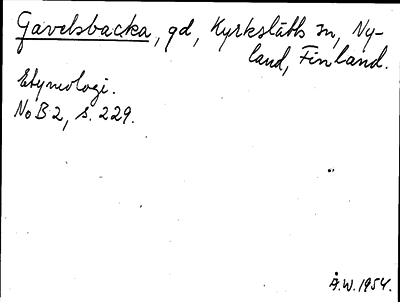 Gavelsbacka, gd, Kyrkslätts sn, Ny-
land, Finland.
Etymologi.
NoB 2, s. 229.
Å.W. 1954.